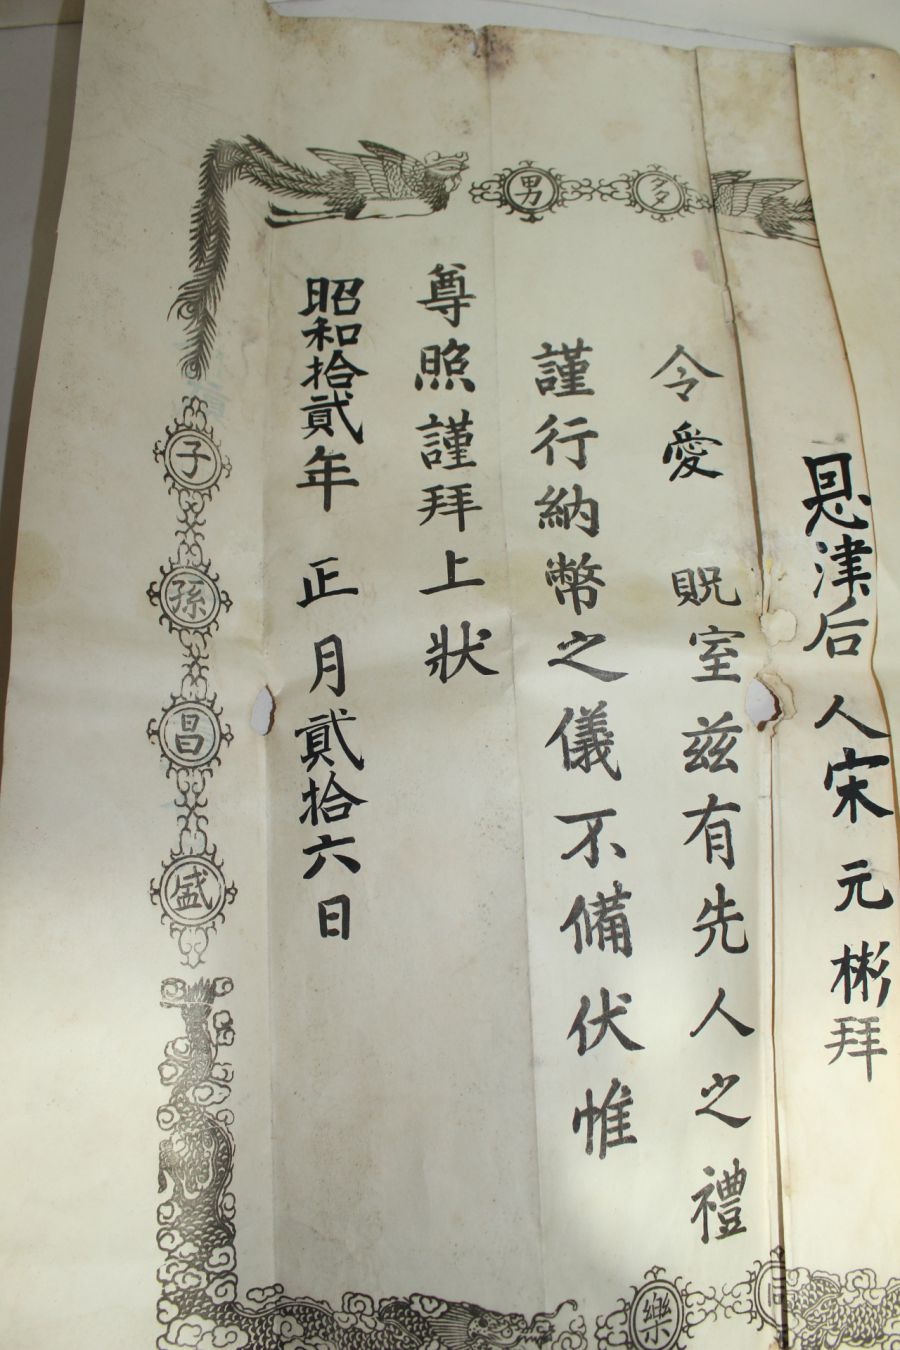 恩津后人宋元彬拜
令愛貺室玆有先人之禮
謹行納幣之儀不備伏惟
尊照謹拜上狀
昭和拾貳年正月貳拾六日
多男
子孫昌盛
樂